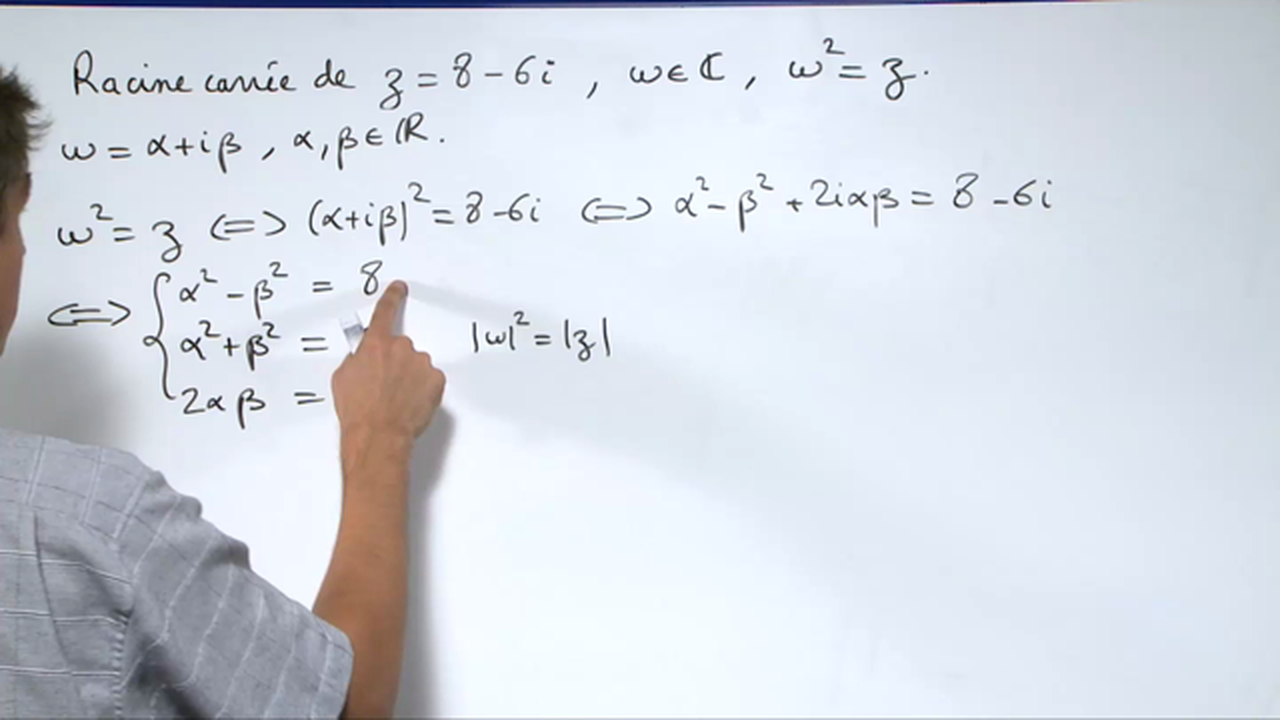 Racine carrée de z = 8 - 6i , w ∈ ℂ , w² = z.
w = α + iβ , α, β ∈ ℝ.
w² = z ⟺ (α+iβ)² = 8 - 6i ⟺ α² - β² + 2iαβ = 8 - 6i
⟺ { α² - β² = 8
α² + β² = |w|² = |z|
2αβ =